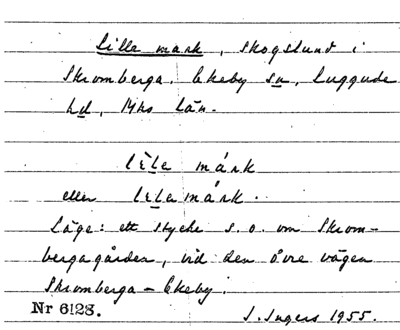 Lille mark, skogslund i
Skromberga, Ekeby sn, Luggude
hd, Mhs län.
lèle márk
eller lèlemárk.
Läge: ett stycke s.o. om Skrom-
bergagården, vid den övre vägen
Skromberga - Ekeby.
Nr 6128.
I. Ingers 1955.